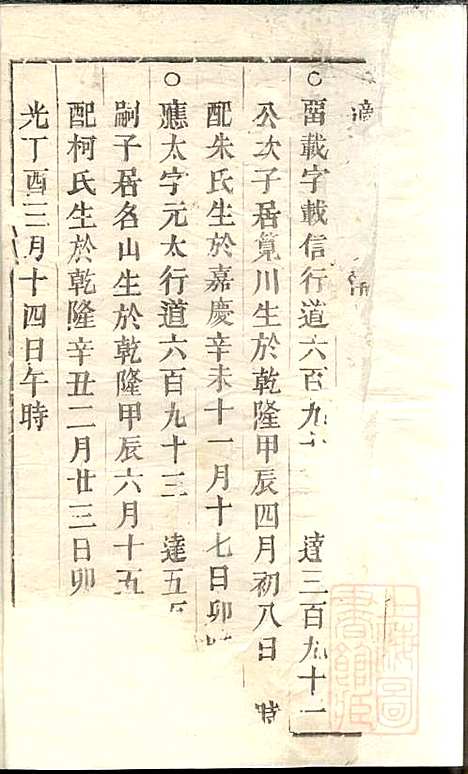 適
○ 畱載字載信行道六百九十 達三百九十一
公次子居筧川生於乾隆甲辰四月初八日 時
配朱氏生於嘉慶辛未十一月十七日卯時
○ 應太字元太行道六百九十三 達五
嗣子居名山生於乾隆甲辰六月十五
配柯氏生於乾隆辛丑二月廿三日卯
光丁酉三月十四日午時
上海圖書館藏